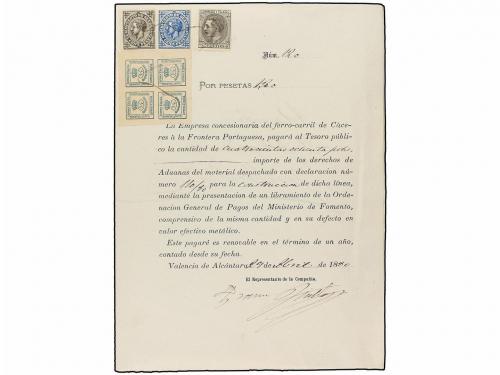 Núm. 120
POR PESETAS
La Empresa concesionaria del ferro-carril de Cáce-
res à la Frontera Portuguesa, pagará al Tesoro públi-
co la cantidad de cuatrocientas ochenta
importe de los derechos de
Aduanas del material despachado con declaracion nú-
mero 110/90 para la construccion de dicha línea,
mediante la presentacion de un libramiento de la Orde-
nacion General de Pagos del Ministerio de Fomento,
comprensivo de la misma cantidad y en su defecto en
valor efectivo metálico.
Este pagaré es renovable en el término de un año,
contado desde su fecha.
Valencia de Alcántara 27 de Abril de 1880
El Representante de la Compañía,